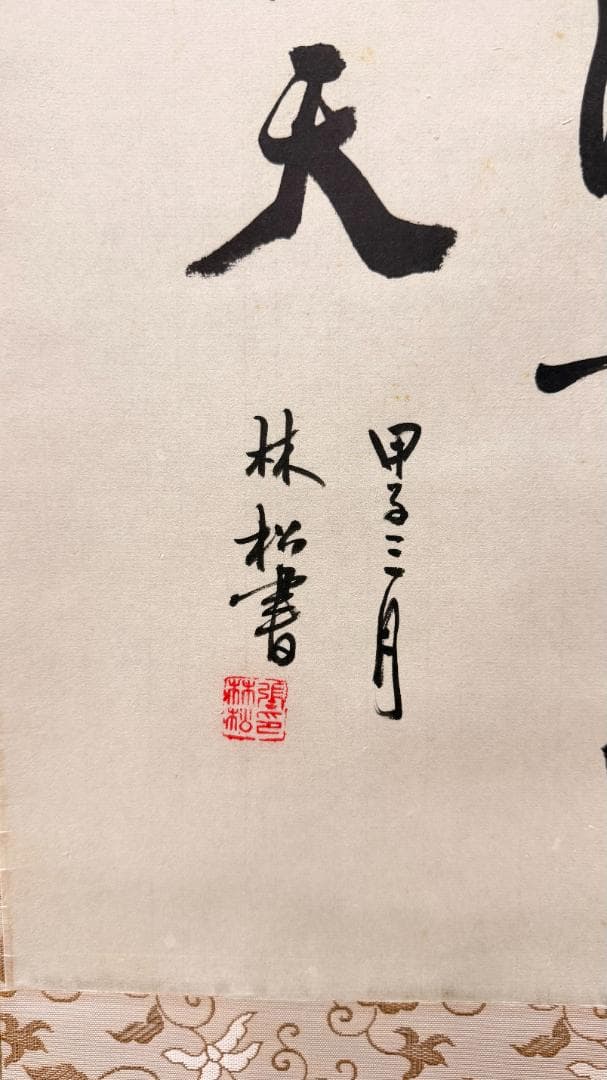 天
甲子三月
林松書
張印
林松